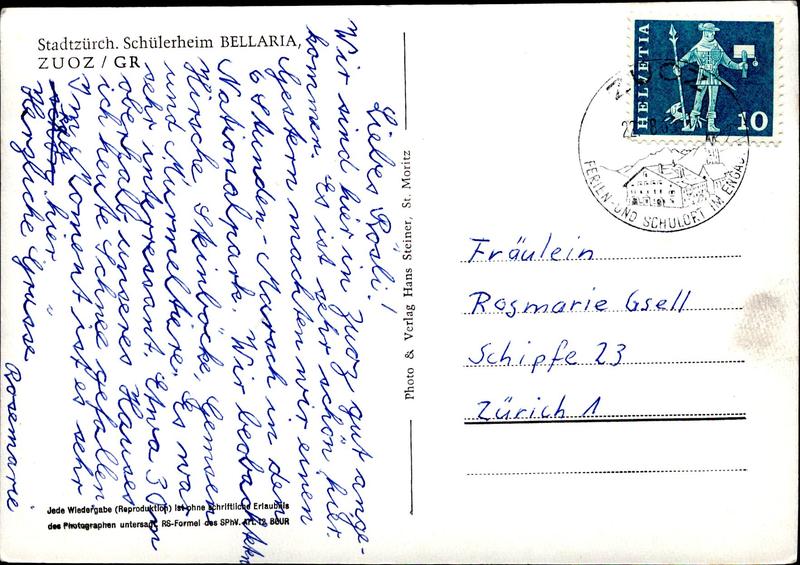 Stadtzürch. Schülerheim BELLARIA,
ZUOZ / GR
Liebes Rösli!
Wir sind hier in Zuoz gut ange-
kommen. Es ist sehr schön hier.
Gestern machten wir einen
6 Stunden-Marsch in den
Nationalpark. Wir beobachteten
Hirsche, Steinböcke, Gemsen
und Murmeltiere. Es war
sehr interressant. Etwa 30 m
oberhalb unseres Hauses
ist heute Schnee gefallen
Im Moment ist es sehr
kalt hier
Herzliche Grüsse
Rosemarie
Jede Wiedergabe (Reproduktion) ist ohne schriftliche Erlaubnis
des Photographen untersagt. RS-Formel des SPhV. Art. 12 BGUR
Photo & Verlag Hans Steiner, St. Moritz
HELVETIA
10
ZUOZ
FERIEN- UND SCHULORT IM ENGAD
Fräulein
Rosmarie Gsell
Schipfe 23
Zürich 1